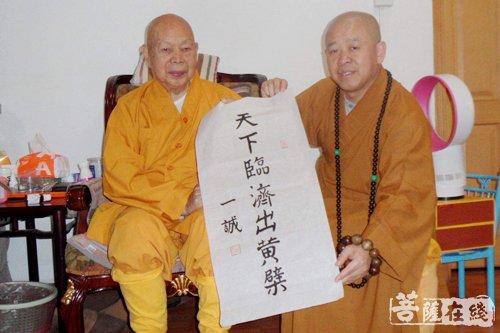 天下臨濟出黃檗
一誠
菩薩在綫